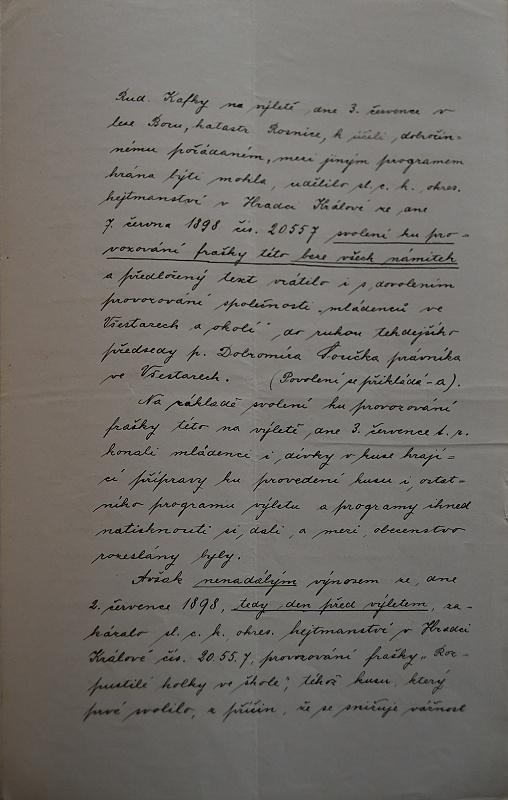 Rud. Kafky na výletě, dne 3. července v
lese Boru, katastr Rosnice, k účeli dobročin-
nému pořádaném, mezi jiným programem
hrána býti mohla, udělilo sl. c. k. okres.
hejtmanství v Hradci Králové ze dne
7. června 1898 čís. 20557 svolení ku pro-
vozování frašky této beze všech námitek
a předložený text vrátilo i s dovolením
provozování společnosti „mládenců ve
Všestarech a okolí" do rukou tehdejšího
předsedy p. Dobromíra Součka právníka
ve Všestarech. (Povolení se přikládá -a).
Na základě svolení ku provozování
frašky této na výletě, dne 3. července t. r.
konali mládenci i dívky v kuse hrají-
cí přípravy ku provedení kusu i ostat-
ního programu výletu a programy ihned
natisknouti si dali, a mezi obecenstvo
rozeslány byly.
Avšak nenadálým výnosem ze dne
2. července 1898, tedy den před výletem, za-
kázalo sl. c. k. okres. hejtmanství v Hradci
Králové čís. 20.557, provozování frašky „Roz-
pustilé holky ve škole", téhož kusu, který
prvé svolilo, z příčin, že se snižuje vážnost